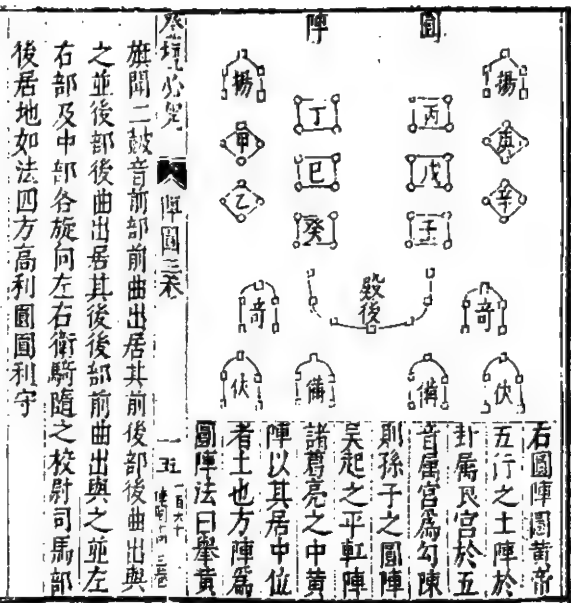 圓陣
揚
揚
丙
丁
庚
甲
戊
巳
辛
乙
子
癸
殿後
奇
奇
伏
備
備
伏
右圓陣圖黄帝
五行之土陣於
卦屬艮宮於五
音屬宮爲勾陳
則孫子之圓陣
吴起之車軭陣
諸葛亮之中黄
陣以其居中位
者土也方陣爲
圓陣法曰舉黄
必覽
陣圖三卷
旗聞二鼓音前部前曲出居其前後部後曲出與
之並後部後曲出居其後後部前曲出與之並左
右部及中部各旋向左右衛騎隨之校尉司馬部
後居地如法四方高利圓圓利守